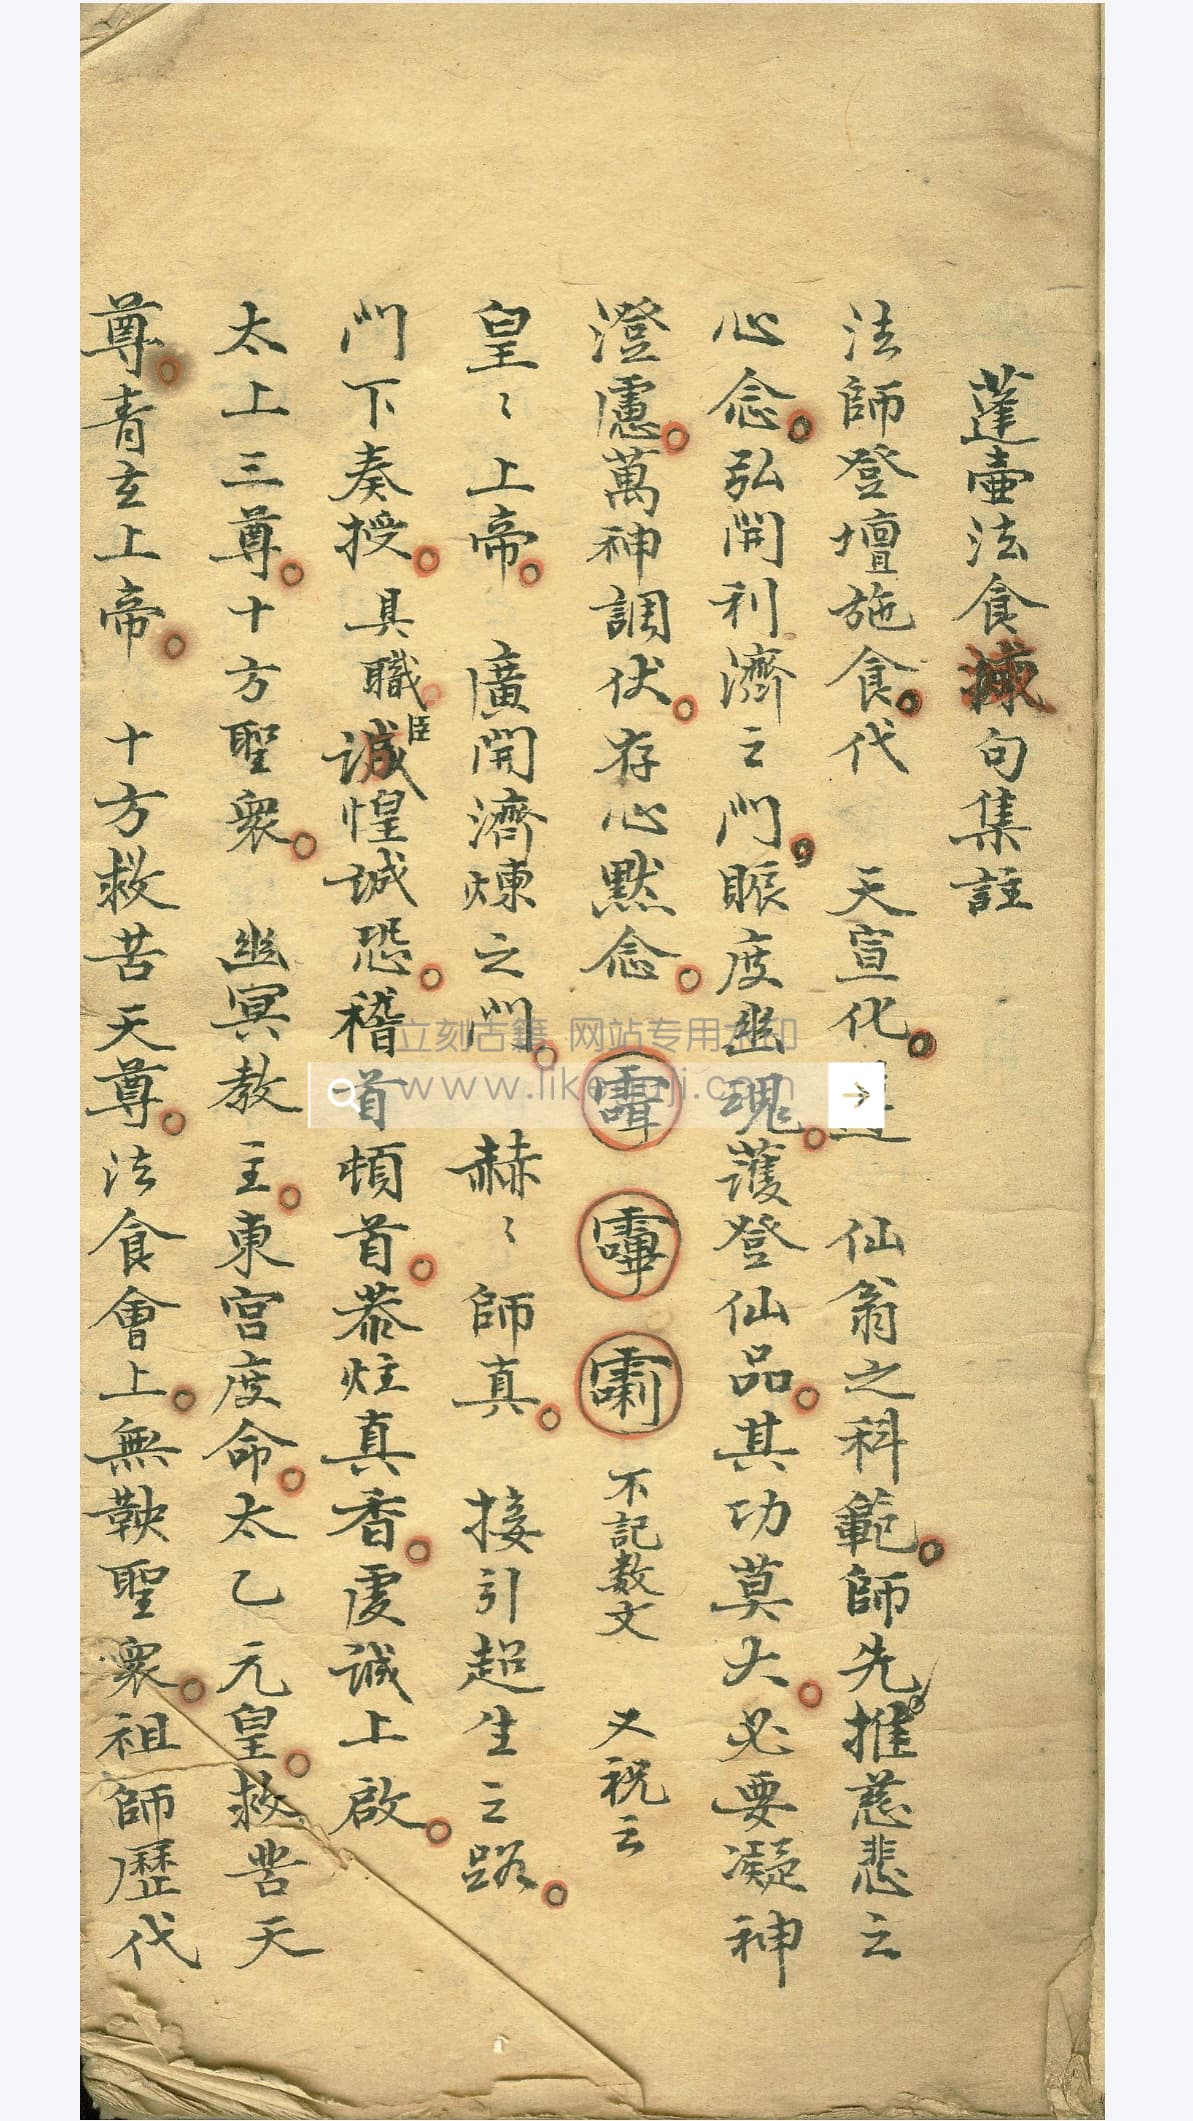 蓬壺法食減句集註
法師登壇施食代 天宣化 仙翁之科範師先推慈悲之
心念弘開利濟之門賑度幽魂護登仙品其功莫大必要凝神
澄慮萬神調伏存心默念 不記数文 又祝云
皇〻上帝 廣開濟煉之門 赫〻師真 接引超生之路
門下奏授具職臣誠惶誠恐稽首頓首恭炷真香虔誠上啟
太上三尊十方聖衆 幽冥教主東宮度命太乙元皇救苦天
尊青玄上帝 十方救苦天尊法食會上無鞅聖衆祖師歷代
立刻古籍 网站专用水印